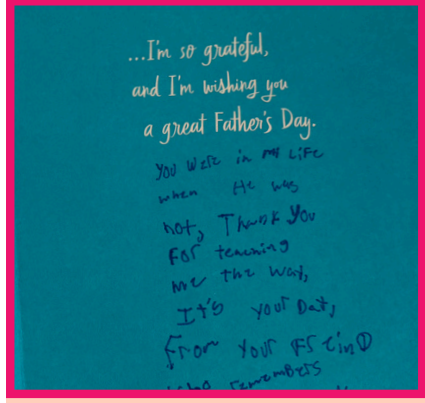 ...I'm so grateful,
and I'm wishing you
a great Father's Day.
You were in my Life
when He was
not, Thank You
For teaching
me the way,
It's your Day,
From Your Friend
who remembers